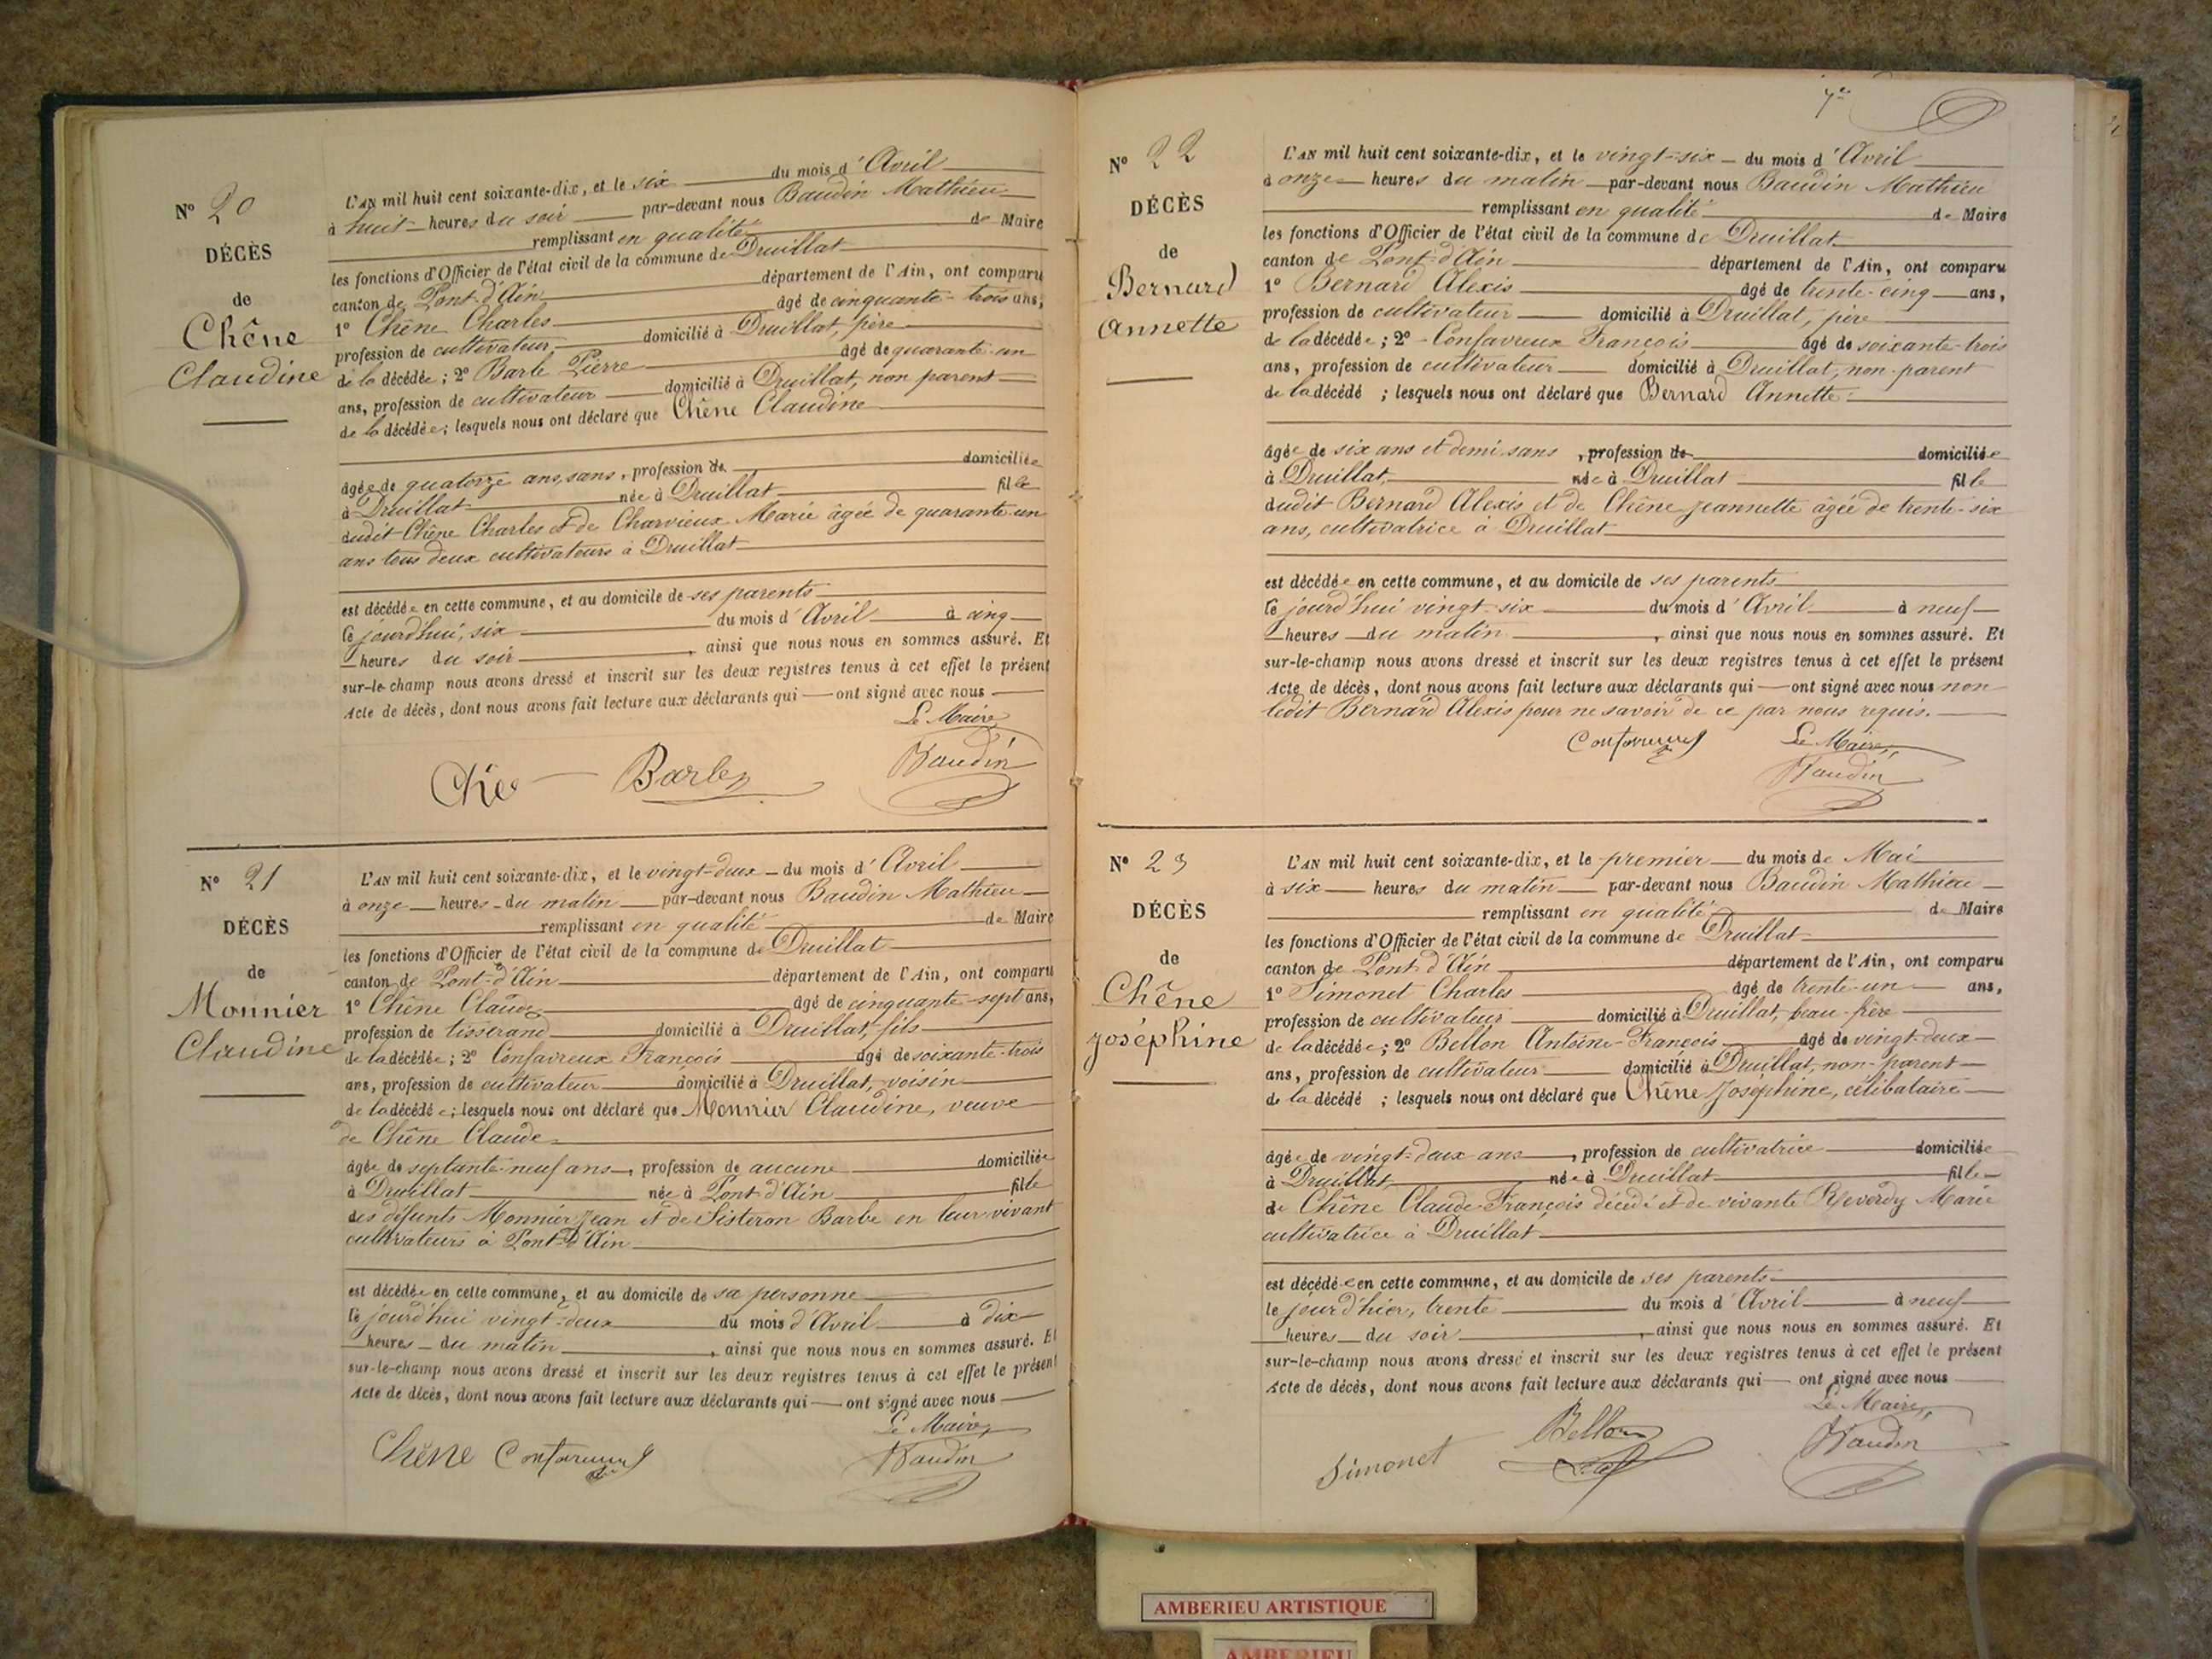 Nº 20
DÉCÈS
de
Chêne
Claudine
L'AN mil huit cent soixante-dix, et le six du mois d'Avril
à huit heures du soir par-devant nous Baudin Mathieu
remplissant en qualité de Maire
les fonctions d'Officier de l'état civil de la commune de Druillat
canton de Pont-d'Ain département de l'Ain, ont comparu
1º Chêne Charles âgé de cinquante-trois ans,
profession de cultivateur domicilié à Druillat, père
de la décédée; 2º Barle Pierre âgé de quarante-un
ans, profession de cultivateur domicilié à Druillat, non parent
de la décédée; lesquels nous ont déclaré que Chêne Claudine
âgée de quatorze ans, sans, profession de domiciliée
à Druillat née à Druillat fille
dudit Chêne Charles et de Charvieux Marie âgée de quarante-un
ans tous deux cultivateurs à Druillat
est décédée en cette commune, et au domicile de ses parents
Ce jourd'hui, six du mois d'Avril à cinq
heures du soir, ainsi que nous nous en sommes assuré. Et
sur-le-champ nous avons dressé et inscrit sur les deux registres tenus à cet effet le présent
Acte de décès, dont nous avons fait lecture aux déclarants qui ont signé avec nous
Le Maire
Barle Baudin
Nº 21
DÉCÈS
de
Monnier
Claudine
L'AN mil huit cent soixante-dix, et le vingt-deux du mois d'Avril
à onze heures du matin par-devant nous Baudin Mathieu
remplissant en qualité de Maire
les fonctions d'Officier de l'état civil de la commune de Druillat
canton de Pont-d'Ain département de l'Ain, ont comparu
1º Chêne Claude âgé de cinquante-sept ans,
profession de tisserand domicilié à Druillat, fils
de la décédée; 2º Confavreux François âgé de soixante-trois
ans, profession de cultivateur domicilié à Druillat, voisin
de la décédée; lesquels nous ont déclaré que Monnier Claudine, veuve
de Chêne Claude
âgée de septante-neuf ans, profession de aucune domiciliée
à Druillat née à Pont-d'Ain fille
des défunts Monnier Jean et de Sisteron Barbe en leur vivant
cultivateurs à Pont-d'Ain
est décédée en cette commune, et au domicile de sa personne
Ce jourd'hui vingt-deux du mois d'Avril à dix
heures du matin, ainsi que nous nous en sommes assuré. Et
sur-le-champ nous avons dressé et inscrit sur les deux registres tenus à cet effet le présent
Acte de décès, dont nous avons fait lecture aux déclarants qui ont signé avec nous
Le Maire,
Chêne Confavreux Baudin
7e
Nº 22
DÉCÈS
de
Bernard
Annette
L'AN mil huit cent soixante-dix, et le vingt-six du mois d'Avril
à onze heures du matin par-devant nous Baudin Mathieu
remplissant en qualité de Maire
les fonctions d'Officier de l'état civil de la commune de Druillat
canton de Pont-d'Ain département de l'Ain, ont comparu
1º Bernard Alexis âgé de trente-cinq ans,
profession de cultivateur domicilié à Druillat, père
de la décédée; 2º Confavreux François âgé de soixante-trois
ans, profession de cultivateur domicilié à Druillat, non-parent
de la décédé ; lesquels nous ont déclaré que Bernard Annette
âgée de six ans et demi sans, profession de domiciliée
à Druillat, née à Druillat fille
dudit Bernard Alexis et de Chêne Jeannette âgée de trente-six
ans, cultivatrice à Druillat
est décédée en cette commune, et au domicile de ses parents
Ce jourd'hui vingt-six du mois d'Avril à neuf
heures du matin, ainsi que nous nous en sommes assuré. Et
sur-le-champ nous avons dressé et inscrit sur les deux registres tenus à cet effet le présent
Acte de décès, dont nous avons fait lecture aux déclarants qui ont signé avec nous non
ledit Bernard Alexis pour ne savoir de ce par nous requis.
Confavreux Le Maire,
Baudin
Nº 23
DÉCÈS
de
Chêne
Joséphine
L'AN mil huit cent soixante-dix, et le premier du mois de Mai
à six heures du matin par-devant nous Baudin Mathieu
remplissant en qualité de Maire
les fonctions d'Officier de l'état civil de la commune de Druillat
canton de Pont-d'Ain département de l'Ain, ont comparu
1º Simonet Charles âgé de trente-un ans,
profession de cultivateur domicilié à Druillat, beau-frère
de la décédée; 2º Bellon Antoine-François âgé de vingt-deux
ans, profession de cultivateur domicilié à Druillat, non-parent
de la décédé ; lesquels nous ont déclaré que Chêne Joséphine, célibataire
âgée de vingt-deux ans, profession de cultivatrice domiciliée
à Druillat, née à Druillat fille
de Chêne Claude-François décédé et de vivante Reverdy Marie
cultivatrice à Druillat
est décédée en cette commune, et au domicile de ses parents
le jour d'hier, trente du mois d'Avril à neuf
heures du soir, ainsi que nous nous en sommes assuré. Et
sur-le-champ nous avons dressé et inscrit sur les deux registres tenus à cet effet le présent
Acte de décès, dont nous avons fait lecture aux déclarants qui ont signé avec nous
Le Maire,
Simonet Bellon Baudin
AMBERIEU ARTISTIQUE
AMBERIEU